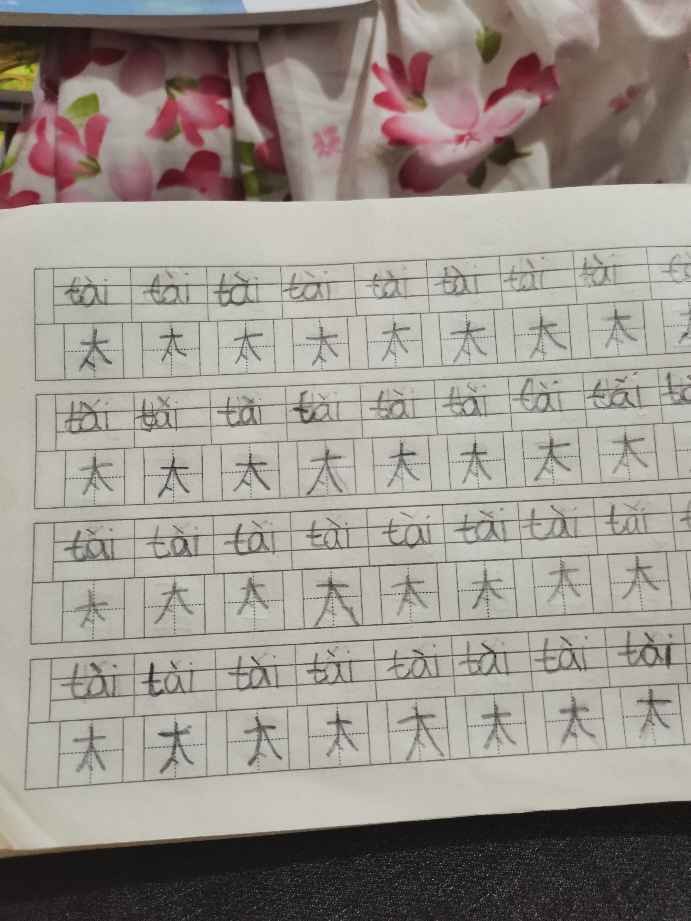 tài tài tài tài tài tài tài tài
太 太 太 太 太 太 太 太
tài tài tài tài tài tài tài tài
太 太 太 太 太 太 太 太
tài tài tài tài tài tài tài tài
太 太 太 太 太 太 太 太
tài tài tài tài tài tài tài tài
太 太 太 太 太 太 太 太